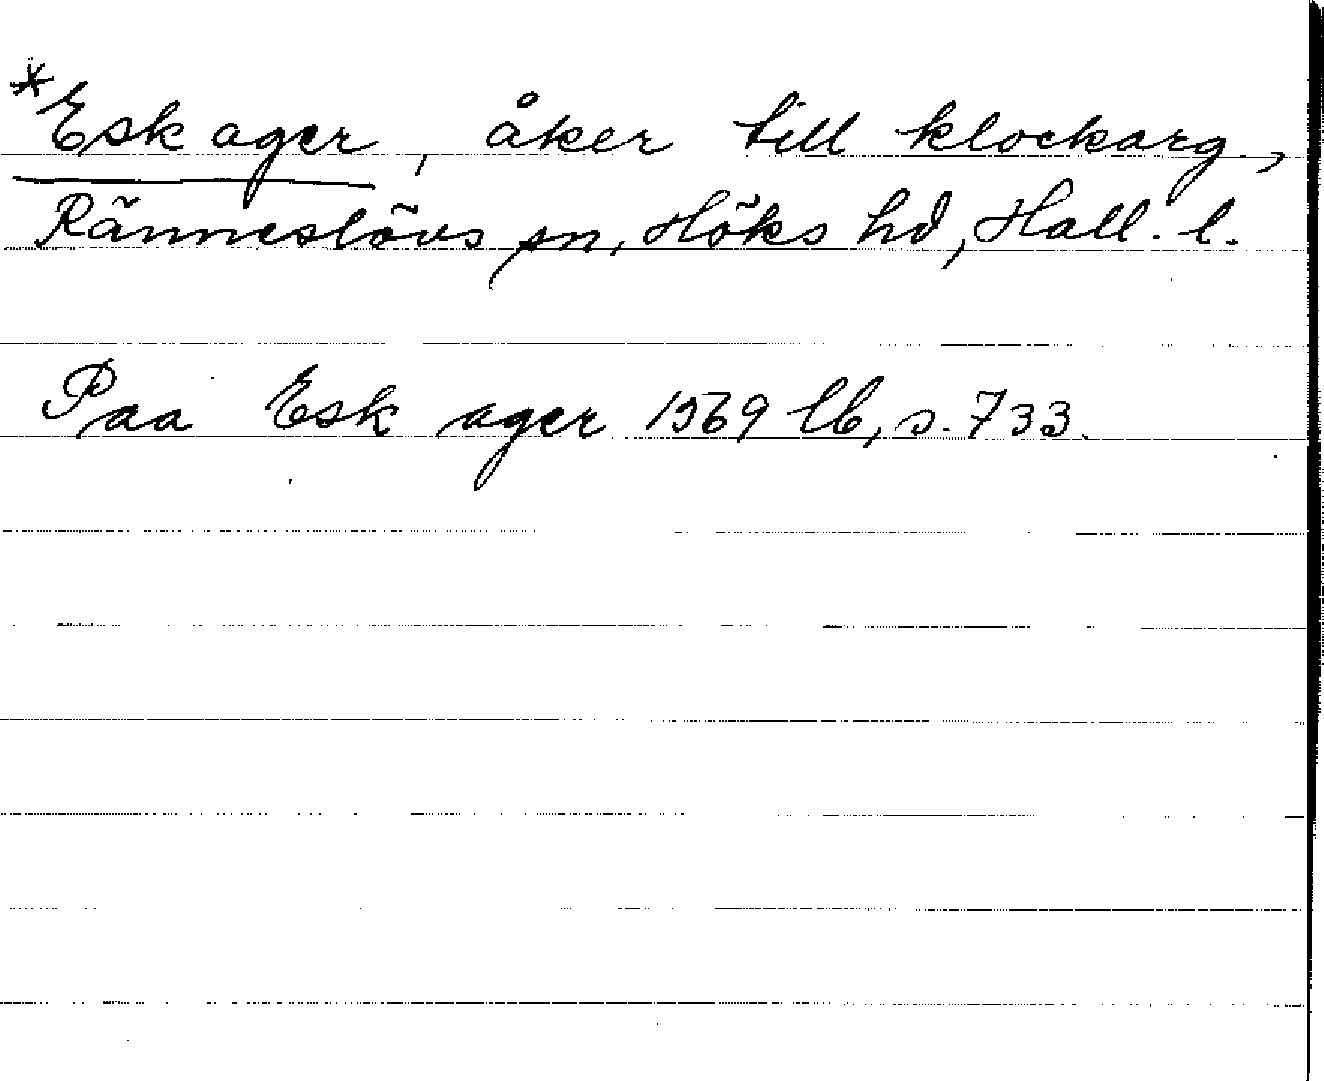 *Esk ager, åker till klockarg.,
Ränneslövs sn, Höks hd, Hall. l.
Paa Esk ager 1569 lb, s. 733.